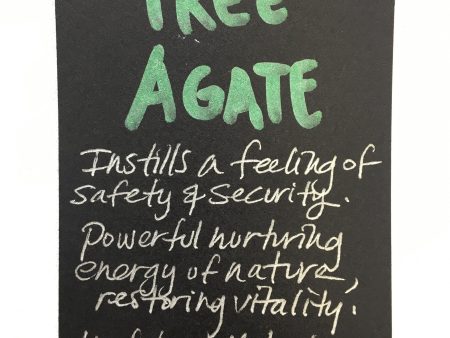 TREE
AGATE
Instills a feeling of
safety & security.
Powerful nurturing
energy of nature,
restoring vitality.